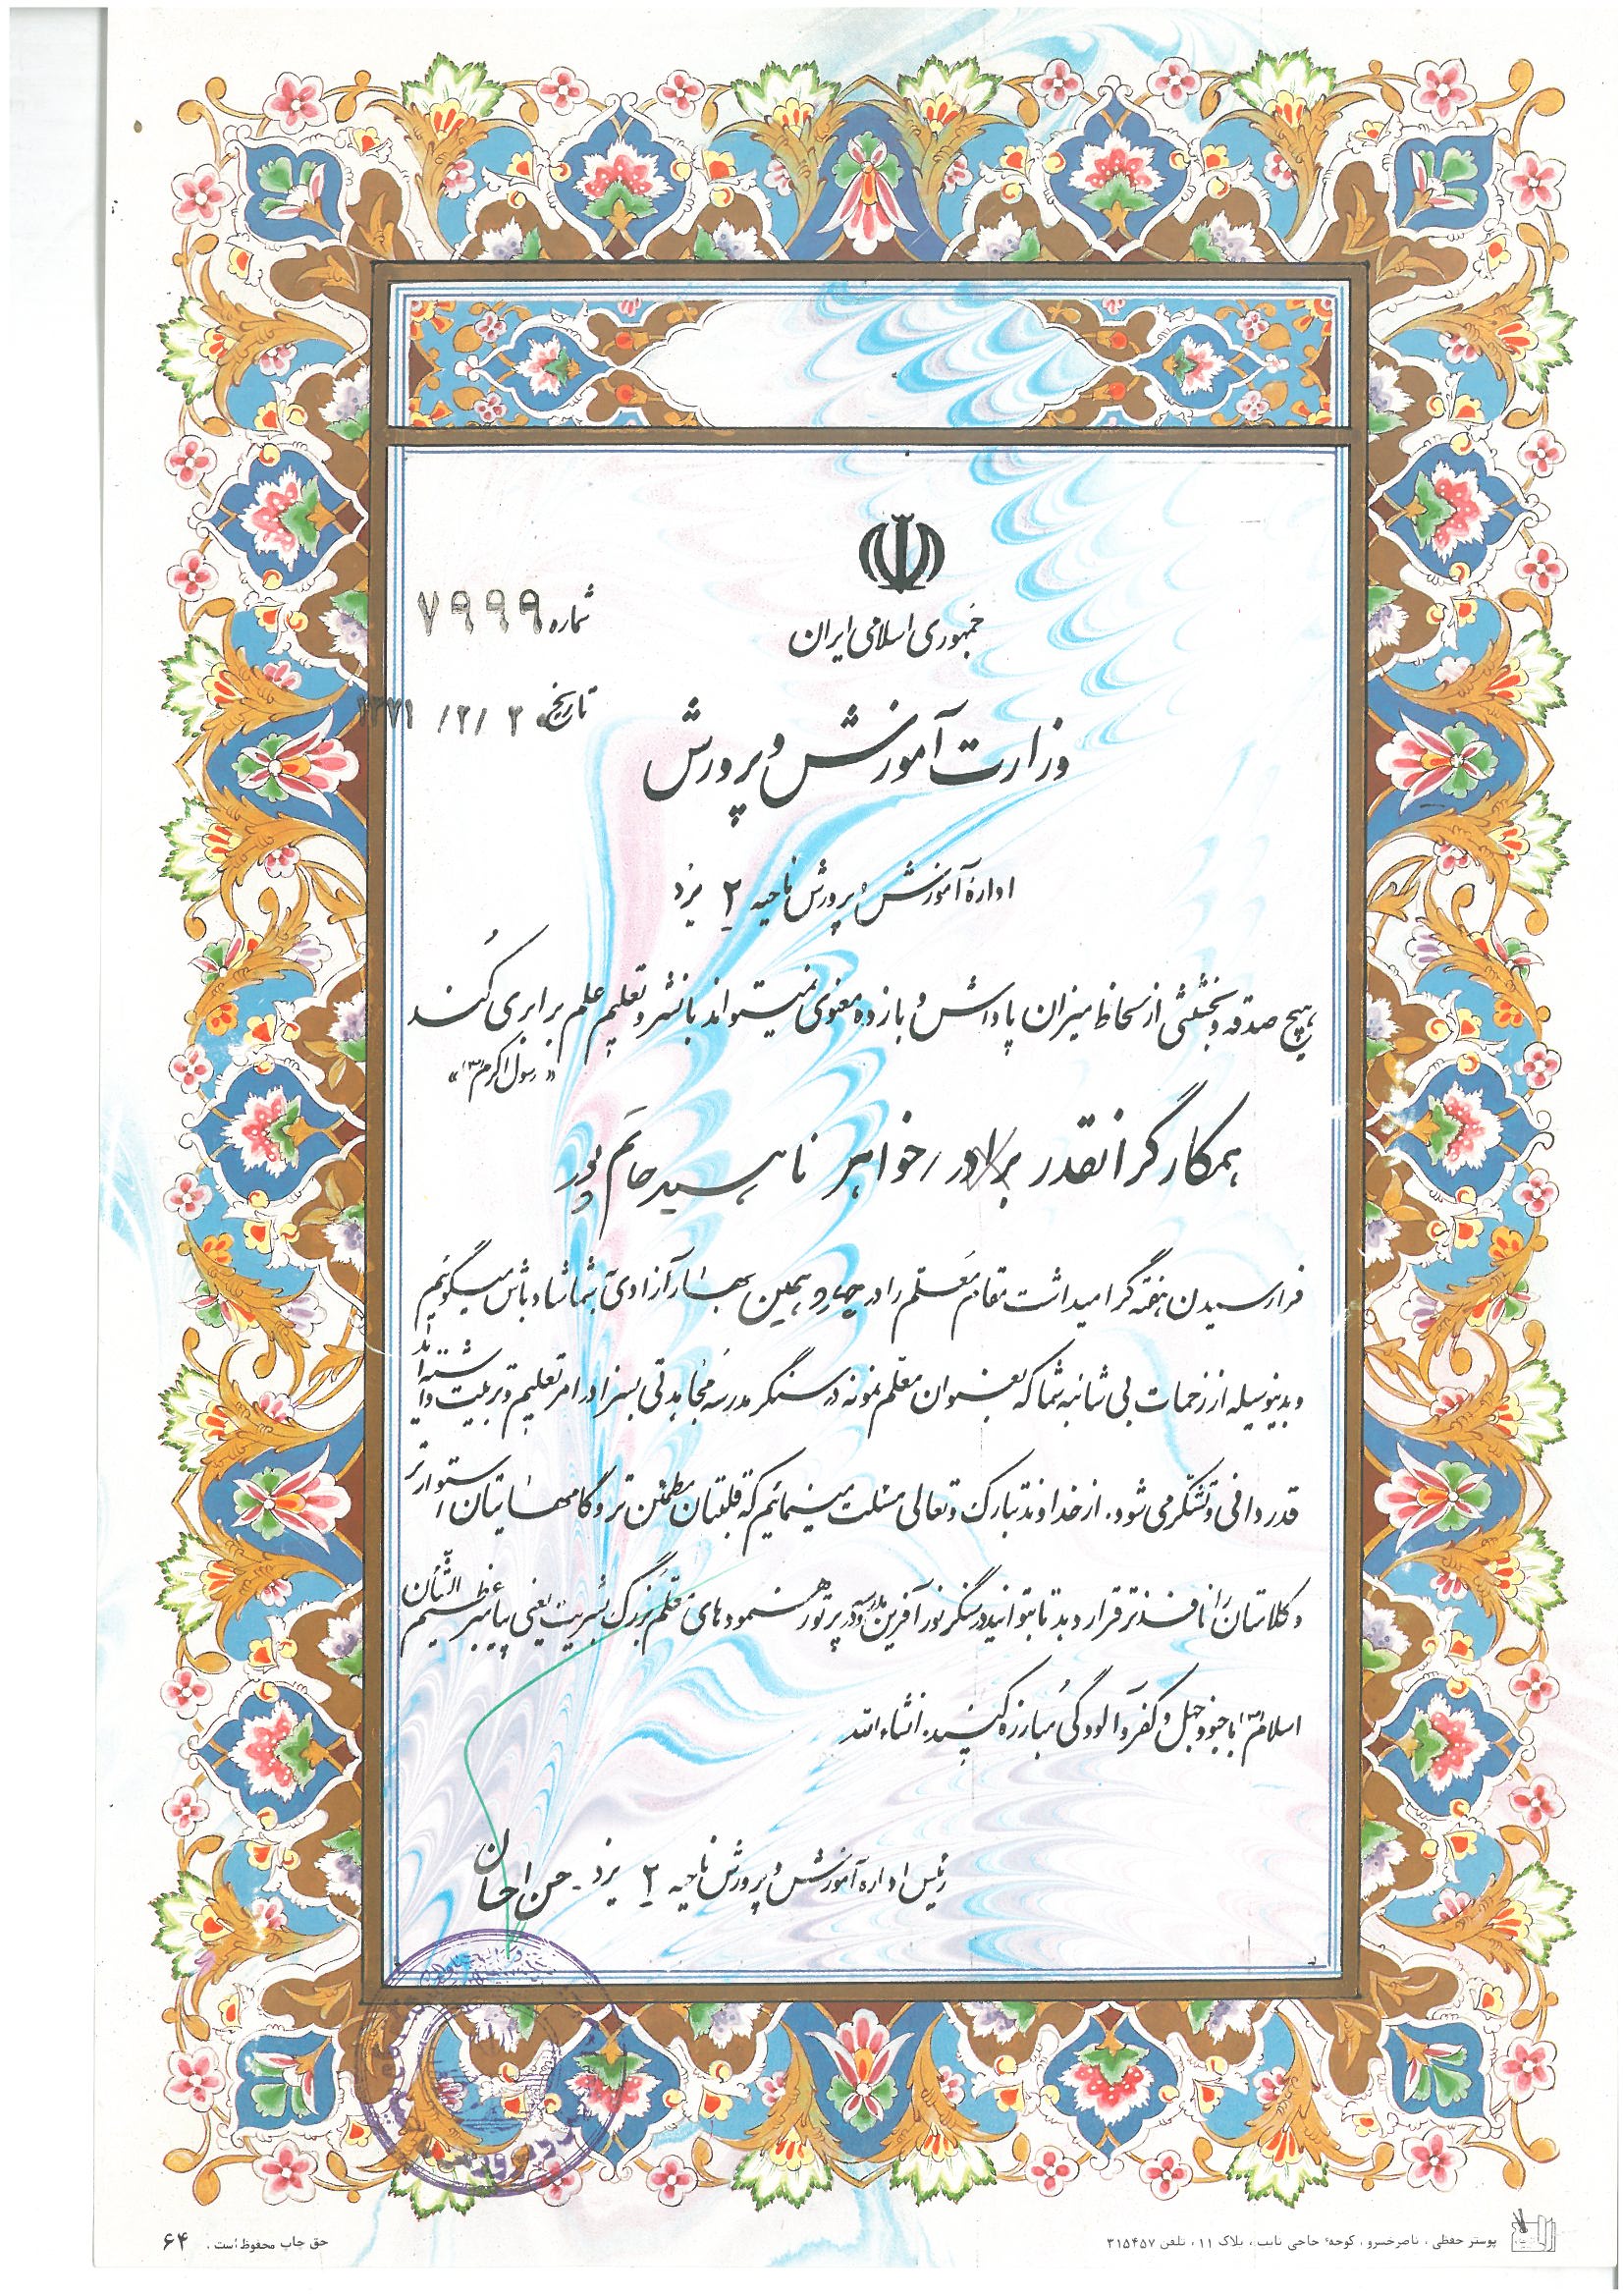 جمهوری اسلامی ایران
شماره ۷۹۹۹
تاریخ ۲ /۲/ ۱۳۷۱
وزارت آموزش و پرورش
اداره آموزش و پرورش ناحیه ۲ یزد
هیچ صدقه و بخششی از لحاظ میزان پاداش و بازده معنوی نمیتواند با نشر و تعلیم علم برابری کند
«رسول اکرم (ص)»
همکار گرانقدر برادر / خواهر ناهید حاتم پور
فرا رسیدن هفته گرامیداشت مقام معلم را در چهاردهمین بهار آزادی بشما شادباش میگوئیم
و بدینوسیله از زحمات بی شائبه شما که بعنوان معلم نمونه در سنگر مدرسه مجاهدتی بسزا در امر تعلیم و تربیت داشته اند
قدردانی و تشکر می شود. از خداوند تبارک و تعالی مسئلت مینمائیم که قلبتان مطمئن تر و گامهایتان استوارتر
و کلامتان را نافذتر قرار دهد تا بتوانید در سنگر نور آفرین مدرسه و در پرتو رهنمودهای معلم بزرگ بشریت یعنی پیامبر عظیم الشأن
اسلام (ص) با جهل و کفر و آلودگی مبارزه کنید. انشاءالله
رئیس اداره آموزش و پرورش ناحیه ۲ یزد - حسن احسان
پوستر حفظی ، ناصرخسرو ، کوچه حاجی نایب ، پلاک ۱۱ ، تلفن ۳۱۵۴۵۷
حق چاپ محفوظ است .
۶۴